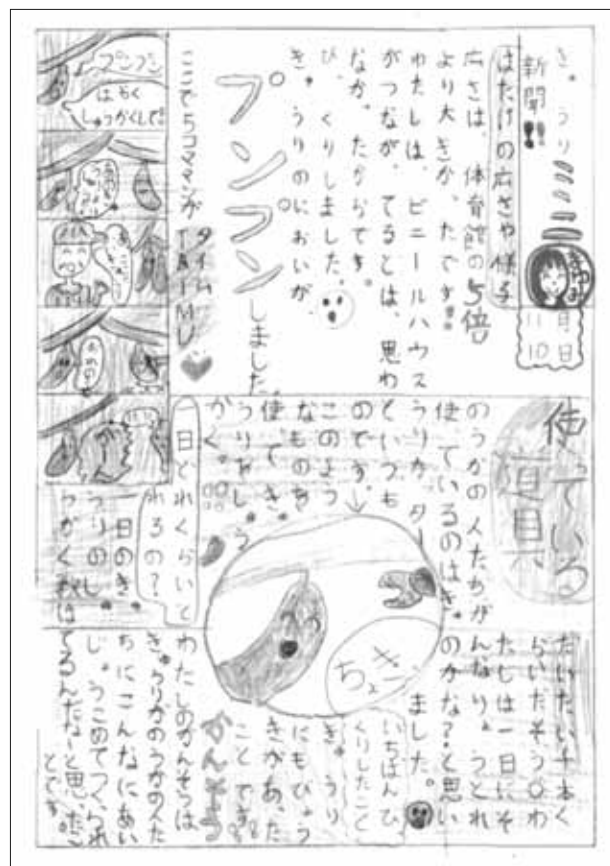 きゅうり
新聞!!
ミニ
11月
10日
はたけの広さや様子
広さは、体育館の5倍
より大きかったです!!
わたしは、ビニールハウス
がつながってるとは、思わ
なかったからです。
びっくりしました。
きゅうりのにおいが、
プンプンしました。
ここで5コママンガタイム
TAIMU
プンプン
はやく
しゅうかくして!!
がーん
使っている
道具
のうかの人たちが
使っているのはきゅ
うりカッターといつも
のです。
このよう
なものを
使ってきゅ
うりをしゅう
かく。
ちょき
一日どれくらいと
れるの?
一日のきゅ
うりのしゅ
うかく数は
だいたい千本く
らいだそう○わ
たしは一日にそ
んなりょうとれ
のかな?と思い
ました。
いちばんびっ
くりしたこと
きゅうり
にもびょう
きがあった
ことです!!
かんそう
わたしのかんそうは
きゅうりのうかの人た
ちにこんなにあい
じょうこめてつくられ
てるんだなーと思ったこ
とです。